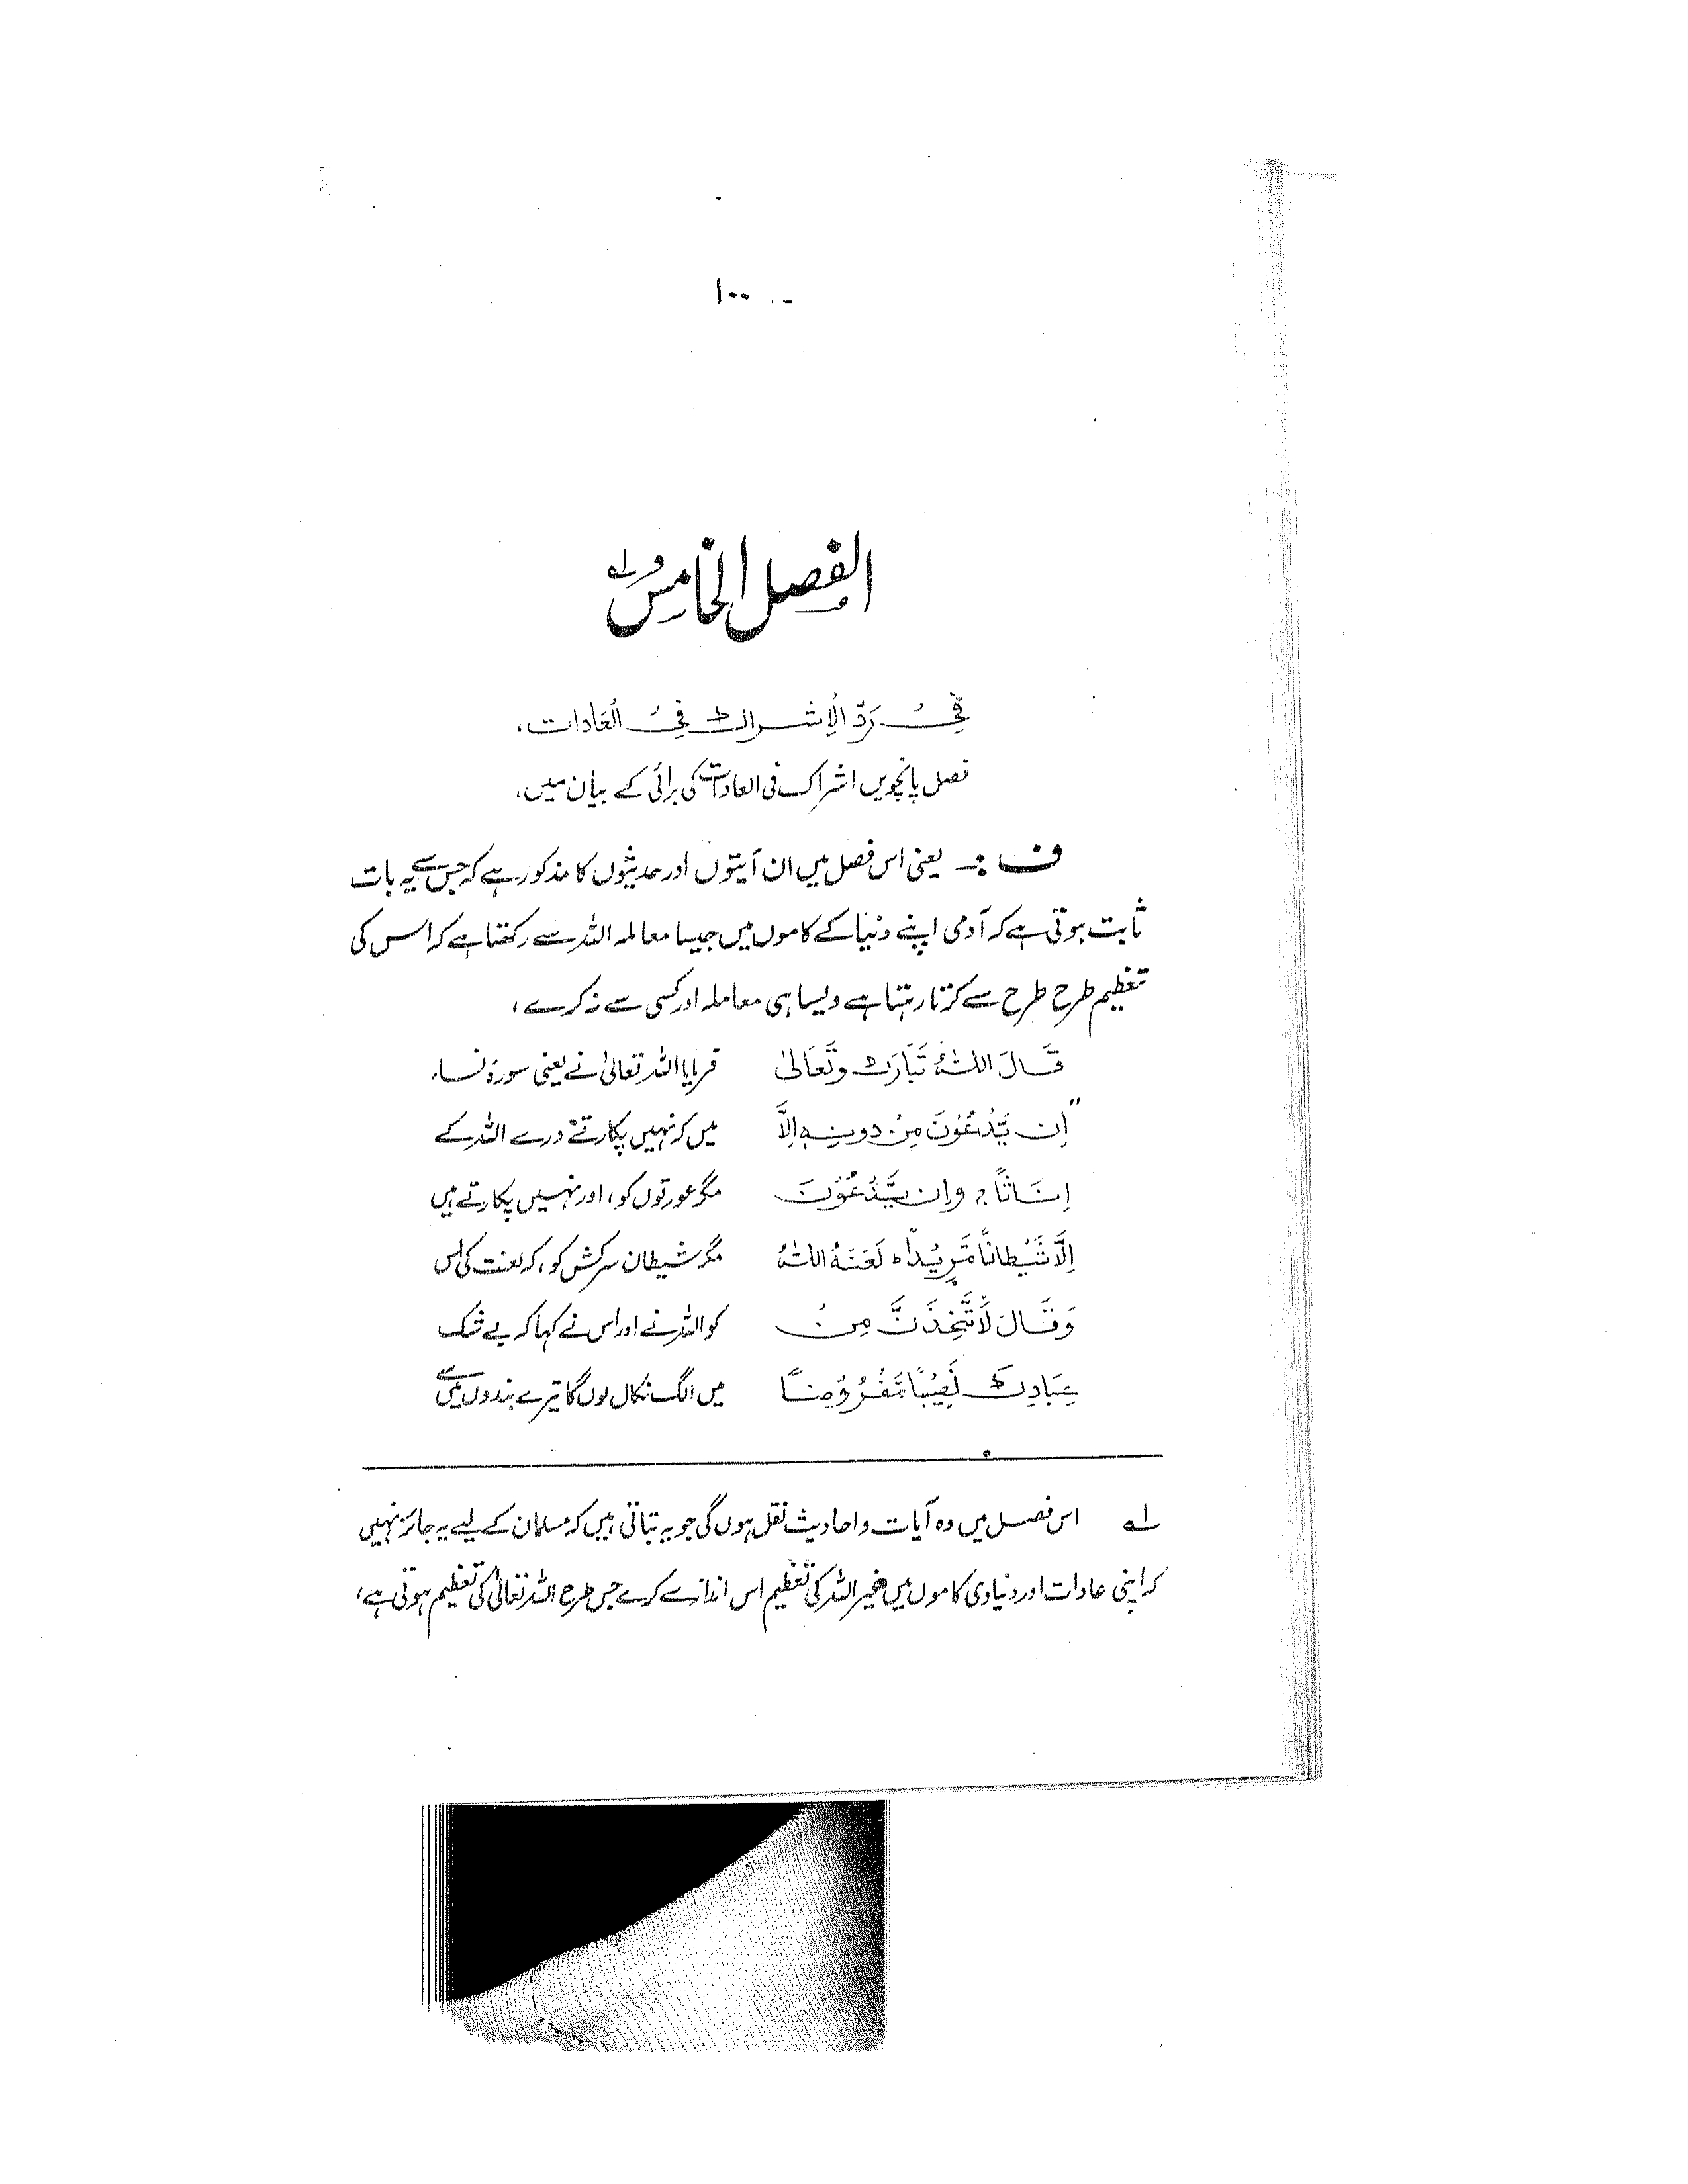 ۱۰۰
الفصل الخامس ؎۱
فِیْ رَدِّ الْاِشراك فِیْ الْعَادات،
فصل پانچویں اشراک فی العادات کی برائی کے بیان میں،
ف :۔ یعنی اس فصل میں ان آیتوں اور حدیثوں کا مذکور ہے کہ جس سے یہ بات
ثابت ہوتی ہے کہ آدمی اپنے دنیا کے کاموں میں جیسا معاملہ اللہ سے رکھتا ہے کہ اس کی
تعظیم طرح طرح سے کرتا رہتا ہے ویسا ہی معاملہ اور کسی سے نہ کرے،
قَالَ اللہُ تَبَارَك وتَعَالیٰ فرمایا اللہ تعالیٰ نے یعنی سورۂ نساء
"اِن یَّدْعُوْنَ مِنْ دونِہٖ اِلَّا میں کہ نہیں پکارتے درے اللہ کے
اِنَاثًا ج وَاِن یَّدْعُوْنَ مگر عورتوں کو، اور نہیں پکارتے ہیں
اِلَّا شَیْطانًا مَّرِیْداً ط لَعَنَہُ اللہُ مگر شیطان سرکش کو، کہ لعنت کی اس
وَقَالَ لَاَتَّخِذَنَّ مِنْ کو اللہ نے اور اس نے کہا کہ بے شک
عِبَادِكَ نَصِیْبًا مَّفْرُوْضًا میں الگ نکال لوں گا تیرے بندوں میں سے
؎۱ اس فصل میں وہ آیات و احادیث نقل ہوں گی جو یہ بتاتی ہیں کہ مسلمان کے لیے یہ جائز نہیں
کہ اپنی عادات اور دنیاوی کاموں میں غیر اللہ کی تعظیم اس انداز سے کرے جس طرح اللہ تعالیٰ کی تعظیم ہوتی ہے،